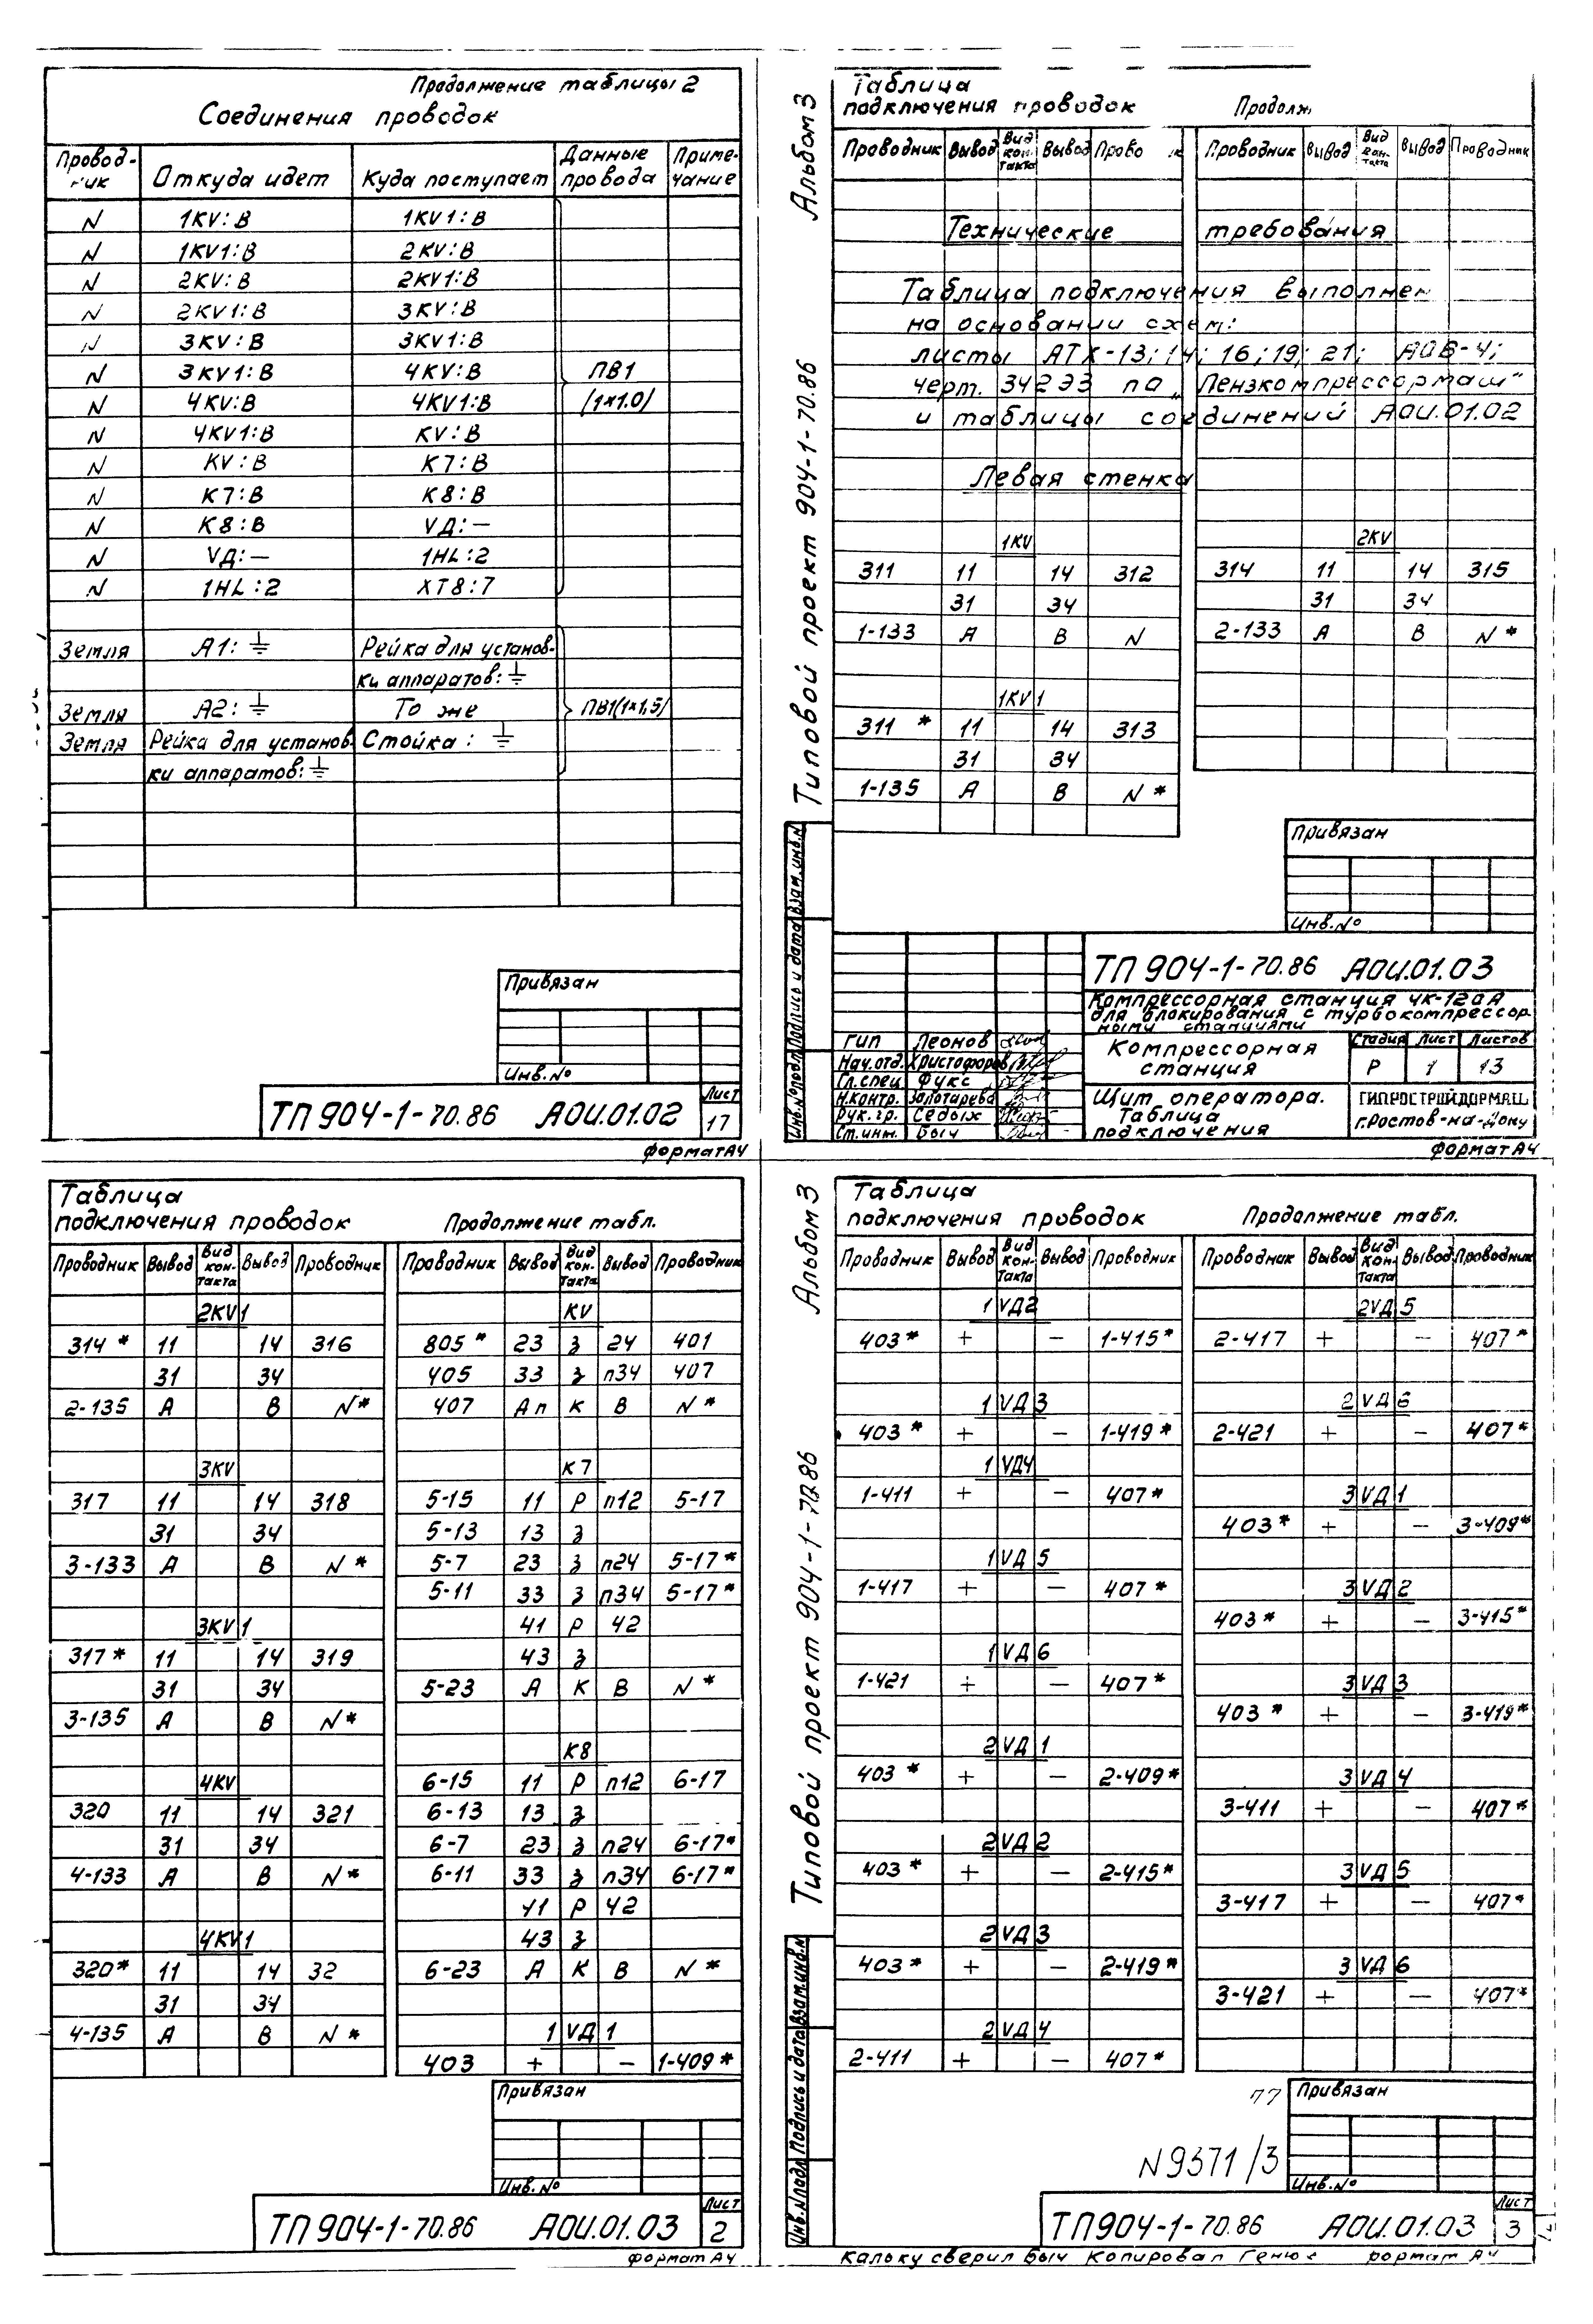 Продолжение таблицы 2
Соединения проводок
Провод- Данные Приме-
ник Откуда идет Куда поступает провода чание
N 1KV:В 1KV1:В
N 1KV1:В 2KV:В
N 2KV:В 2KV1:В
N 2KV1:В 3KV:В
N 3KV:В 3KV1:В
N 3KV1:В 4KV:В ПВ1
N 4KV:В 4KV1:В /1×1.0/
N 4KV1:В KV:В
N KV:В К7:В
N К7:В К8:В
N К8:В VД:—
N VД:— 1HL:2
N 1HL:2 ХТ8:7
Земля А1:⏚ Рейка для установ-
ки аппаратов:⏚
Земля А2:⏚ То же ПВ1(1×1,5/
Земля Рейка для установ Стойка:⏚
ки аппаратов:⏚
Привязан
Инв.№
ТП 904-1-70.86 АОИ.01.02 Лист 17
формат А4
Альбом 3
Типовой проект 904-1-70.86
Взам.инв.N
Подпись и дата
Инв.№подл.
Таблица
подключения проводок Продолж
Проводник Вывод Вид кон- такта Вывод Прово к Проводник Вывод Вид кон- такт Вывод Проводник
Технические требования
Таблица подключения выполнен
на основании схем:
листы АТХ-13; 14; 16; 19; 21; АОВ-4;
черт. 342ЭЗ по „Пензкомпрессормаш"
и таблицы соединений АОИ.01.02
Левая стенка
1KV 2KV
311 11 14 312 314 11 14 315
31 34 31 34
1-133 А В N 2-133 А В N*
1KV1
311 * 11 14 313
31 34
1-135 А В N*
Привязан
Инв.№
ТП 904-1-70.86 АОИ.01.03
Компрессорная станция 4К-120А
для блокирования с турбокомпрессор-
ными станциями
ГИП Леонов
Нач.отд. Христофоров
Гл.спец Фукс
Н.контр. Золотарева
Рук.гр. Седых
Ст.инж. Быч
Компрессорная
станция
Стадия Лист Листов
Р 1 13
Щит оператора.
Таблица
подключения
ГИПРОСТРОЙДОРМАШ
г.Ростов-на-Дону
формат А4
Таблица
подключения проводок Продолжение табл.
Проводник Вывод Вид кон- такта Вывод Проводник Проводник Вывод Вид кон- такта Вывод Проводник
2KV1 KV
314 * 11 14 316 805 * 23 з 24 401
31 34 405 33 з п34 407
2-135 А В N* 407 Ап К В N*
3KV К7
317 11 14 318 5-15 11 Р п12 5-17
31 34 5-13 13 з
3-133 А В N* 5-7 23 з п24 5-17*
5-11 33 з п34 5-17*
3KV1 41 Р 42
317 * 11 14 319 43 з
31 34 5-23 А К В N*
3-135 А В N*
К8
4KV 6-15 11 Р п12 6-17
320 11 14 321 6-13 13 з
31 34 6-7 23 з п24 6-17*
4-133 А В N* 6-11 33 з п34 6-17*
41 Р 42
4KV1 43 з
320* 11 14 32 6-23 А К В N*
31 34
4-135 А В N* 1VД1
403 + — 1-409*
Привязан
Инв.№
ТП 904-1-70.86 АОИ.01.03 Лист 2
формат А4
Альбом 3
Типовой проект 904-1-70.86
Взам.инв.N
Подпись и дата
Инв.Nподл
Таблица
подключения проводок Продолжение табл.
Проводник Вывод Вид кон- такта Вывод Проводник Проводник Вывод Вид кон- такта Вывод Проводник
1VД2 2VД5
403* + — 1-415* 2-417 + — 407*
1VД3 2VД6
403* + — 1-419* 2-421 + — 407*
1VД4
1-411 + — 407* 3VД1
403* + — 3-409*
1VД5
1-417 + — 407* 3VД2
403* + — 3-415*
1VД6
1-421 + — 407* 3VД3
403* + — 3-419*
2VД1
403* + — 2-409* 3VД4
3-411 + — 407*
2VД2
403* + — 2-415* 3VД5
3-417 + — 407*
2VД3
403* + — 2-419* 3VД6
3-421 + — 407*
2VД4
2-411 + — 407*
Привязан
N9371/3
Инв.№
ТП 904-1-70.86 АОИ.01.03 Лист 3
Кальку сверил Быч Копировал формат А4